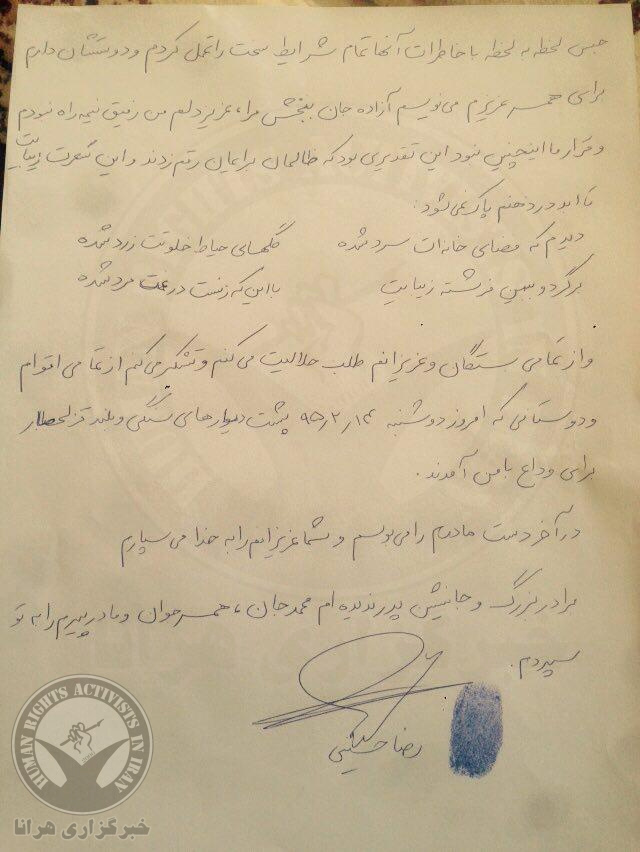 حبس لحظه به لحظه با خاطرات آنها تمام شرایط سخت را تحمل کردم و دوستشان دارم
برای همسر عزیزم می‌نویسم آزاده جان ببخش مرا، عزیز دلم من رفیق نیمه راه نبودم
و قرار ما اینچنین نبود این تقدیری بود که ظالمان برایمان رقم زدند و این
تا ابد در ذهنم پاک نمی‌شود.
دیدم که فضای خانه‌ات سرد شده گلهای حیاط خلوتت زرد شده
برگرد و ببین فرشته زیبایت با این که زنست در غمت مرد شده
و از تمامی بستگان و عزیزانم طلب حلالیت می کنم و تشکر می‌کنم از تمامی اقوام
و دوستانی که امروز دوشنبه ۹۵٫۲٫۱۳ پشت دیوارهای سنگی و بلند قزلحصار
برای وداع با من آمدند.
در آخر دست مادرم را می بوسم و شما عزیزانم را به خدا می سپارم
برادر بزرگ و جانشین پدر ندیده ام محمد جان، همسر جوان و مادر پیرم را به تو
سپردم.
رضا حسینی
HUMAN RIGHTS ACTIVISTS IN IRAN
خبرگزاری هرانا